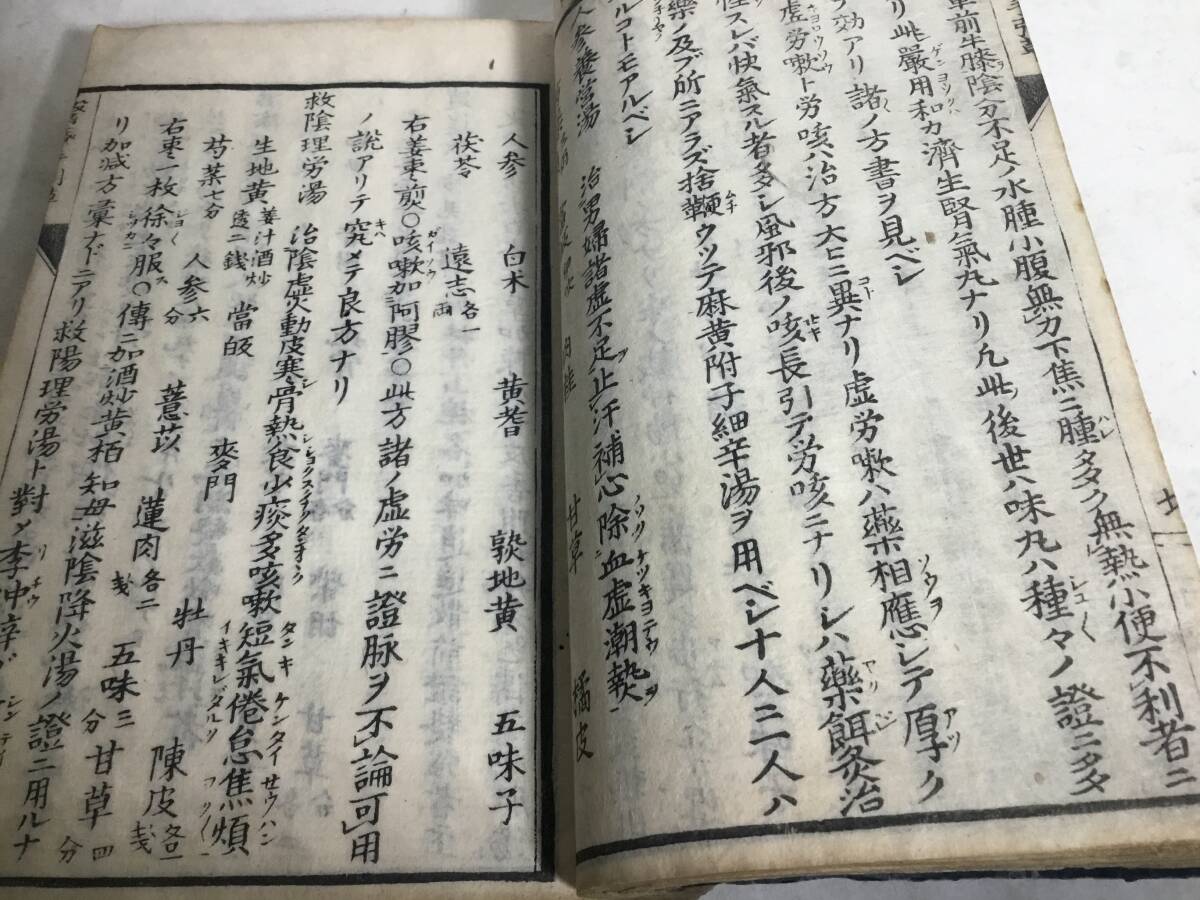 車前牛膝陰分不足ノ水腫小腹無力下焦ニ腫多ク無熱小便不利者ニ
リ此嚴用和カ濟生腎氣丸ナリ凡此後世八味丸八種々ノ證ニ多
ノ効アリ諸ノ方書ヲ見ベシ
虚労嗽ト労咳ハ治方大ヒニ異ナリ虚労嗽ハ藥相應シテ厚ク
スレバ快氣スル者多シ風邪後ノ咳長引テ労咳ニナリシハ藥餌灸治
藥ノ及ブ所ニアラズ捨鞭ウツテ麻黄附子細辛湯ヲ用ベシ十人ニ一人ハ
ルコトモアルベシ
人参養営湯 治男婦諸虚不足止汗補心除血虚潮熱
甘草 橘皮
人参 白术 黄耆 熟地黄 五味子
茯苓 遠志各一両
右姜枣煎○咳嗽加阿膠○此方諸ノ虚労ニ證脉ヲ不論可用
ノ説アリテ究メテ良方ナリ
救陰理労湯 治陰虚火動皮寒骨熱食少痰多咳嗽短氣倦怠焦煩
生地黄姜汁酒炒透二銭 當皈 麥門 牡丹 陳皮各一戔
芍薬七分 人参六分 薏苡 蓮肉各二戔 五味三分 甘草四分
右枣一枚徐々服ス○傳ニ加酒炒黄栢知母滋陰降火湯ノ證ニ用ルナ
リ加減方彙ナドニアリ救陽理労湯ト對メ李中梓ガ